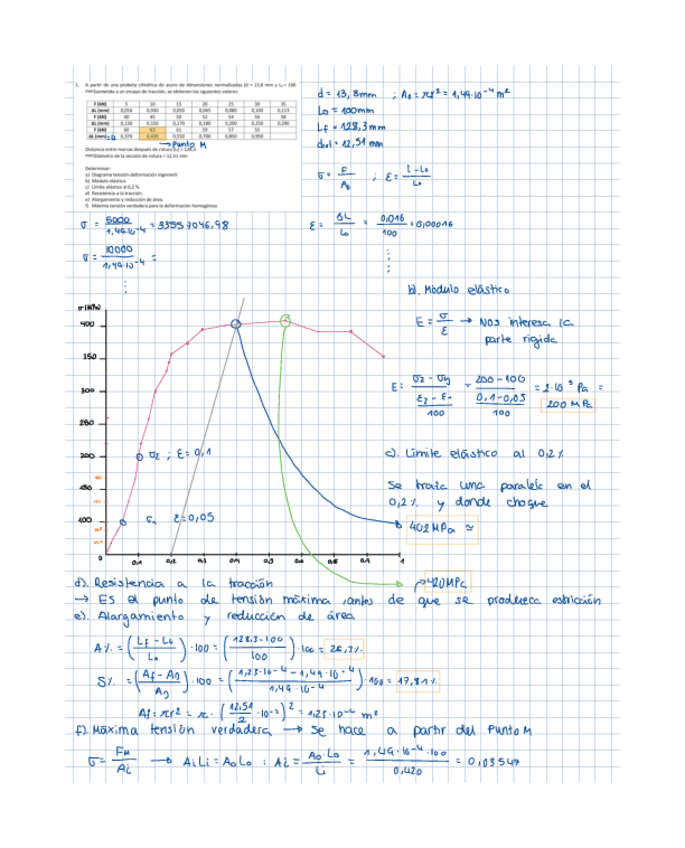 1. A partir de una probeta cilíndrica de acero de dimensiones normalizadas (d = 13,8 mm y L₀ = 100
mm) sometida a un ensayo de tracción, se obtienen los siguientes valores:
F (kN) 5 10 15 20 25 30 35
ΔL (mm) 0,016 0,030 0,050 0,065 0,080 0,100 0,113
F (kN) 40 45 50 52 54 56 58
ΔL (mm) 0,130 0,150 0,170 0,180 0,200 0,250 0,290
F (kN) 60 62 61 59 57 55
ΔL (mm) 0,370 0,420 0,550 0,700 0,850 0,950
→ Punto M
Distancia entre marcas después de rotura
Diámetro de la sección de rotura = 12,51 mm
Determinar:
a) Diagrama tensión-deformación ingenieril
b) Módulo elástico.
c) Límite elástico al 0,2 %.
d) Resistencia a la tracción.
e) Alargamiento y reducción de área.
f) Máxima tensión verdadera para la deformación homogénea.
d = 13,8mm ; A₀ = πr² = 1,49·10⁻⁴ m²
L₀ = 100mm
LF = 128,3mm
= 12,51 mm
σ = F/A₀ ; ε = L-L₀/L₀
σ = 5000/1,49·10⁻⁴ = 33557046,98
ε = ΔL/L₀ = 0,016/100 = 0,00016
σ = 10000/1,49·10⁻⁴ =
b). Modulo elástico
E = σ/ε → Nos interesa la
parte rigida
= 200-100 / 0,1-0,05/100 = 2·10⁵ Pa =
200 MPa
c). Limite elástico al 0,2%
Se traza una paralela en el
0,2% y donde choque
402MPa ≃
σ (MPa)
400
300
200
100
0
σ₂ ; ε=0,1
ε=0,05
0,1 0,2
1
d). Resistencia a la tracción
420MPa
→ Es el punto de tensión máxima ,antes de que se produzca estricción
e). Alargamiento y reducción de área
A% = (LF - L₀ / L₀) · 100 = (128,3-100 / 100) · 100 = 28,3%
S% = (Af - A₀ / A₀) · 100 = (1,23·10⁻⁴ - 1,49·10⁻⁴ / 1,49·10⁻⁴) · 100 = 17,81%
Af = πr² = π · (12,51/2 · 10⁻³)² = 1,23·10⁻⁴ m²
f). Máxima tensión verdadera → Se hace a partir del Punto M
σ = FM/Ai → AiLi = A₀L₀ : Ai = A₀·L₀/Li = 1,49·10⁻⁴·100 / 0,420 = 0,03547